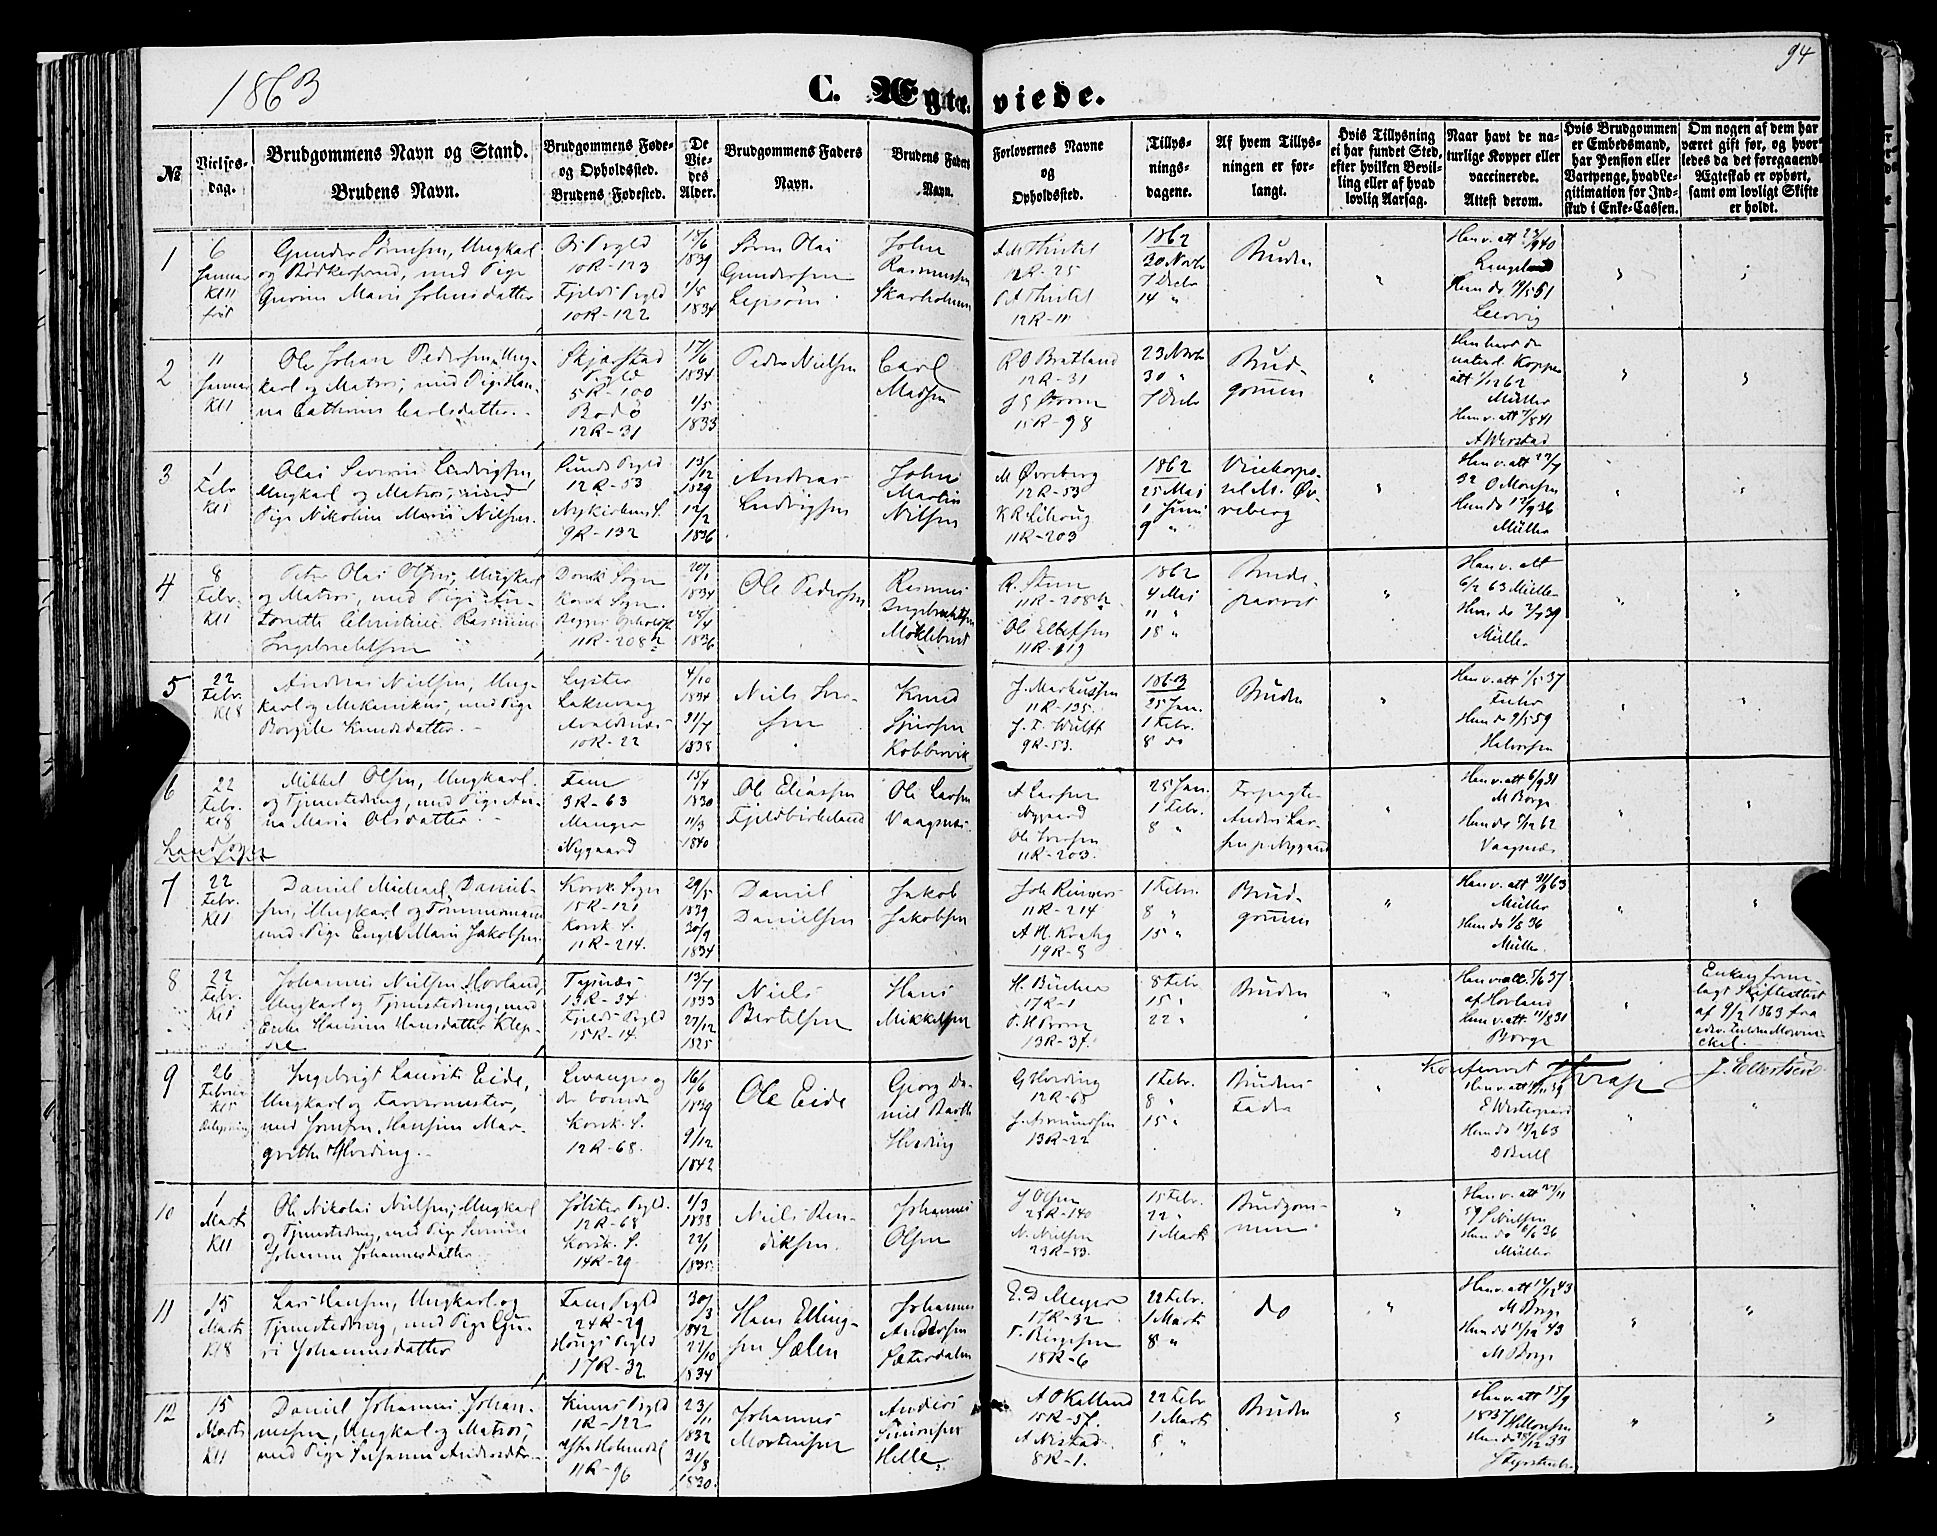 1863
94
C. Ægte- viede.
№
Vielses-
dag.
Brudgommens Navn og Stand.
Brudens Navn.
Brudgommens Føde-
og Opholdssted.
Brudens Fødested.
De
Vie-
des
Alder.
Brudgommens Faders
Navn.
Brudens Faders
Navn.
Forlovernes Navne
og
Opholdssted.
Tillys-
nings-
dagene.
Af hvem Tillys-
ningen er for-
langt.
Hvis Tillysning
ei har fundet Sted,
efter hvilken Bevil-
ling eller af hvad
lovlig Aarsag.
Naar havt de na-
turlige Kopper eller
vaccinerede.
Attest derom.
Hvis Brudgommen
er Embedsmand,
har Pension eller
Vartpenge, hvad Le-
gitimation for Ind-
skud i Enke-Cassen.
Om nogen af dem har
været gift før, og hvor-
ledes da det foregaaende
Ægteskab er ophørt,
samt om lovligt Skifte
er holdt.
1
6
Januar
Kl 11
Gunder Sørensen, Ungkarl
og Bødkersvend, med Pige
Gurine Marie Johnsdatter
10R-123
Fjelds Prgld
10R-122
1839
1/8
1834
Søren Olai
Gundersen
Lepsøen
John
Rasmussen
Skarholmen
12R-25
12R-11
1862
30 Novbr
7 Decbr
14 "
Bruden
2
11
Januar
Kl 1
Ole Johan Pedersen, Ung-
karl og Matros, med Pige Han-
na Cathrine Carlsdatter
Skjærstad
Prgld
5R-100
Bodø
12R-31
17/6
1834
1/5
1833
Peder Nielsen
Carl
Madsen
R O Bratland
12R-31
J E Storm
15R-98
23 Novbr
30 "
7 Decbr
Brud-
gommen
Han havt de
naturl. Kopper
att 1/12 62
Müller
Hun v. att 7/8 41
3
1
Febr
Kl 1
Olai Severin Ludvigsen,
Ungkarl og Matros, med
Pige Nikoline Marie Nilsen
Sunds Prgld
12R-53
Nykirkens S.
9R-132
13/12
1829
12/2
1836
Andreas
Ludvigsen
John
Martin
Nilsen
M Øvreberg
12R-53
11R-203
1862
25 Mai
1 Juni
9 "
Vicekorpo-
ral M. Øv-
reberg
Han v. att 27/7
32 O Monsen
Hun do 12/9 36
Müller
4
8
Febr.
Kl 1
Peter Olai Olsen, Ungkarl
og Matros, med Pige An-
tonette Christine Rasmine
Ingebrichtsen
Domk Sogn
Korsk Sogn.
11R-208
20/1
1834
28/4
1836
Ole Pedersen
Rasmus
Ingebrichtsen
Møklebust
R. Steen
11R-208
Ole Ellefsen
11R-119
1862
4 Mai
11 "
18 "
Brude-
parret
Han v. att
6/2 63 Müller
Hun do 7/7 39
Müller
5
22
Febr.
Kl 8
Andreas Nielsen, Ung-
karl og Mekanikus, med Pige
Borgile Knudsdatter
Lyster
Laksevaag
Avaldsnæs
10R-22
4/10
1834
31/7
1838
Niels Iver-
sen
Knud
Sjursen
Kobbervik
J. Markussen
11R-135
J. F. Wulff
9R-53
1863
25 Jan.
1 Febr.
8 do
Bruden
6
22
Febr.
Kl 8
Landsogn
Mikkel Olsen, Ungkarl
og Tjenestedreng, med Pige An-
na Maria Olsdatter
Fane
3R-63
Manger
Nygaard
15/4
1830
11/3
1840
Ole Eliassen
Fjeldbirkeland
Ole Larsen
Vaagsnæs
A Larsen
Nygaard
Ole Iversen
11R-203
25 Jan.
1 Febr.
8 "
Forpagter
Anders Lar-
sen p Nygaard
Han v. att 6/9 31
M Borge
Hun do 7/12 62
Vaagsnæs
7
22
Febr.
Kl 1
Daniel Michael Daniel-
sen, Ungkarl og Tømmermand
med Pige Engel Marie Jakobsen
Korsk. Sogn
15R-121
Korsk. S.
11R-214
29/5
1839
30/9
1834
Daniel
Danielsen
Jakob
Jakobsen
Joh Reimers
11R-214
A H. Krahg
19R-3
1 Febr.
8 "
15 "
Brud-
gommen
Müller
Hun do 1/8 36
Müller
8
22
Febr.
Kl 1
Johannes Nielsen Hovland,
Ungkarl og Tjenestedreng, med
Enke Hansine Hansdatter Klep-
pe
Tysnæs
13R-34
Fjelds Prgld
15R-14
13/7
1833
27/12
1825
Niels
Bertelsen
Hans
Mikkelsen
H. Bücher
17R-1
13R-37
8 Febr
15 "
22 "
Bruden
Han v. att. 5/6 37
af Hovland
Hun v. att. 11/8 31
Borge
Enken frem-
lagt Skifteattest
af 9/2 1863 fra
9
26
Februar
Kl 5
Ingebrigt Laurits Eide,
Ungkarl og Farvermester,
med Jomfru Hansine Mar-
grethe Hvoding
Levanger og
der boende
Korsk. S.
12R-68
16/6
1839
9/12
1842
Ole Eide
Georg Da-
niel Barth
Hvoding
G Hvoding
12R-68
J. Asmundsen
13R-22
1 Febr.
8 "
15 "
Brudens
Fader
Konfereret
J. Ellertsen
Han v. att 11/11 39
E Westergaard
Hun do 18/2 63
D Bull
10
1
Marts
Kl 1
Ole Nikolai Nielsen, Ungkarl
og Tjenestedreng, med Pige Severine
Johanne Johannesdatter
Jølster Prgld.
12R-68
Korsk. S.
14R-29
1/3
1838
22/1
1835
Niels Ben-
diksen
Johannes
Olsen
J Olsen
23R-140
N. Nielsen
23R-83
15 Febr.
22 "
1 Marts
Brudgom-
men
Han v. att 27/11
59 S Nielsen
Hun do 6/6 36
Müller
11
15
Marts
Kl 8
Lars Hansen, Ungkarl og
Tjenestedreng, med Pige Gu-
ri Johannesdatter
Fane Prgld
24R-29
Hougs Prgld
17R-32
30/3
1842
22/10
1834
Hans Elling-
sen Sælen
Johannes
Andersen
Sæterdalen
E. D Meyer
17R-32
T. Birgesen
18R-6
22 Febr.
1 Marts
8 "
do
Han v. att 14/12 43
M Borge
Hun do 15/12 43
M Borge
12
15
Marts
Kl 1
Daniel Johannes Johan-
nessen, Ungkarl og Matros,
med Pige Susanne Andersdtr
Kinns Prgld
1R-122
11R-96
23/11
1832
31/8
1830
Johannes
Mortensen
Anders
Simonsen
Helle
A O Kalland
15R-57
A Nistad
8R-1
22 Febr
1 Marts
8 "
Bruden
Han v. att 15/9
1837 H Monsen
Hun do 28/12 33